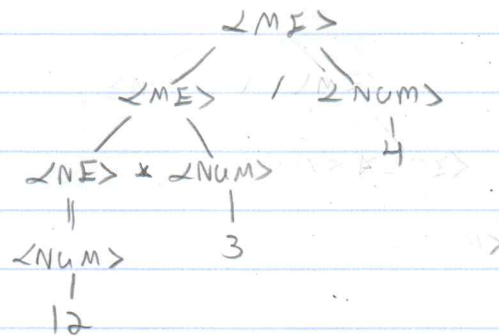 <ME>
<ME> / <NUM>
4
<NE> * <NUM>
3
<NUM>
12